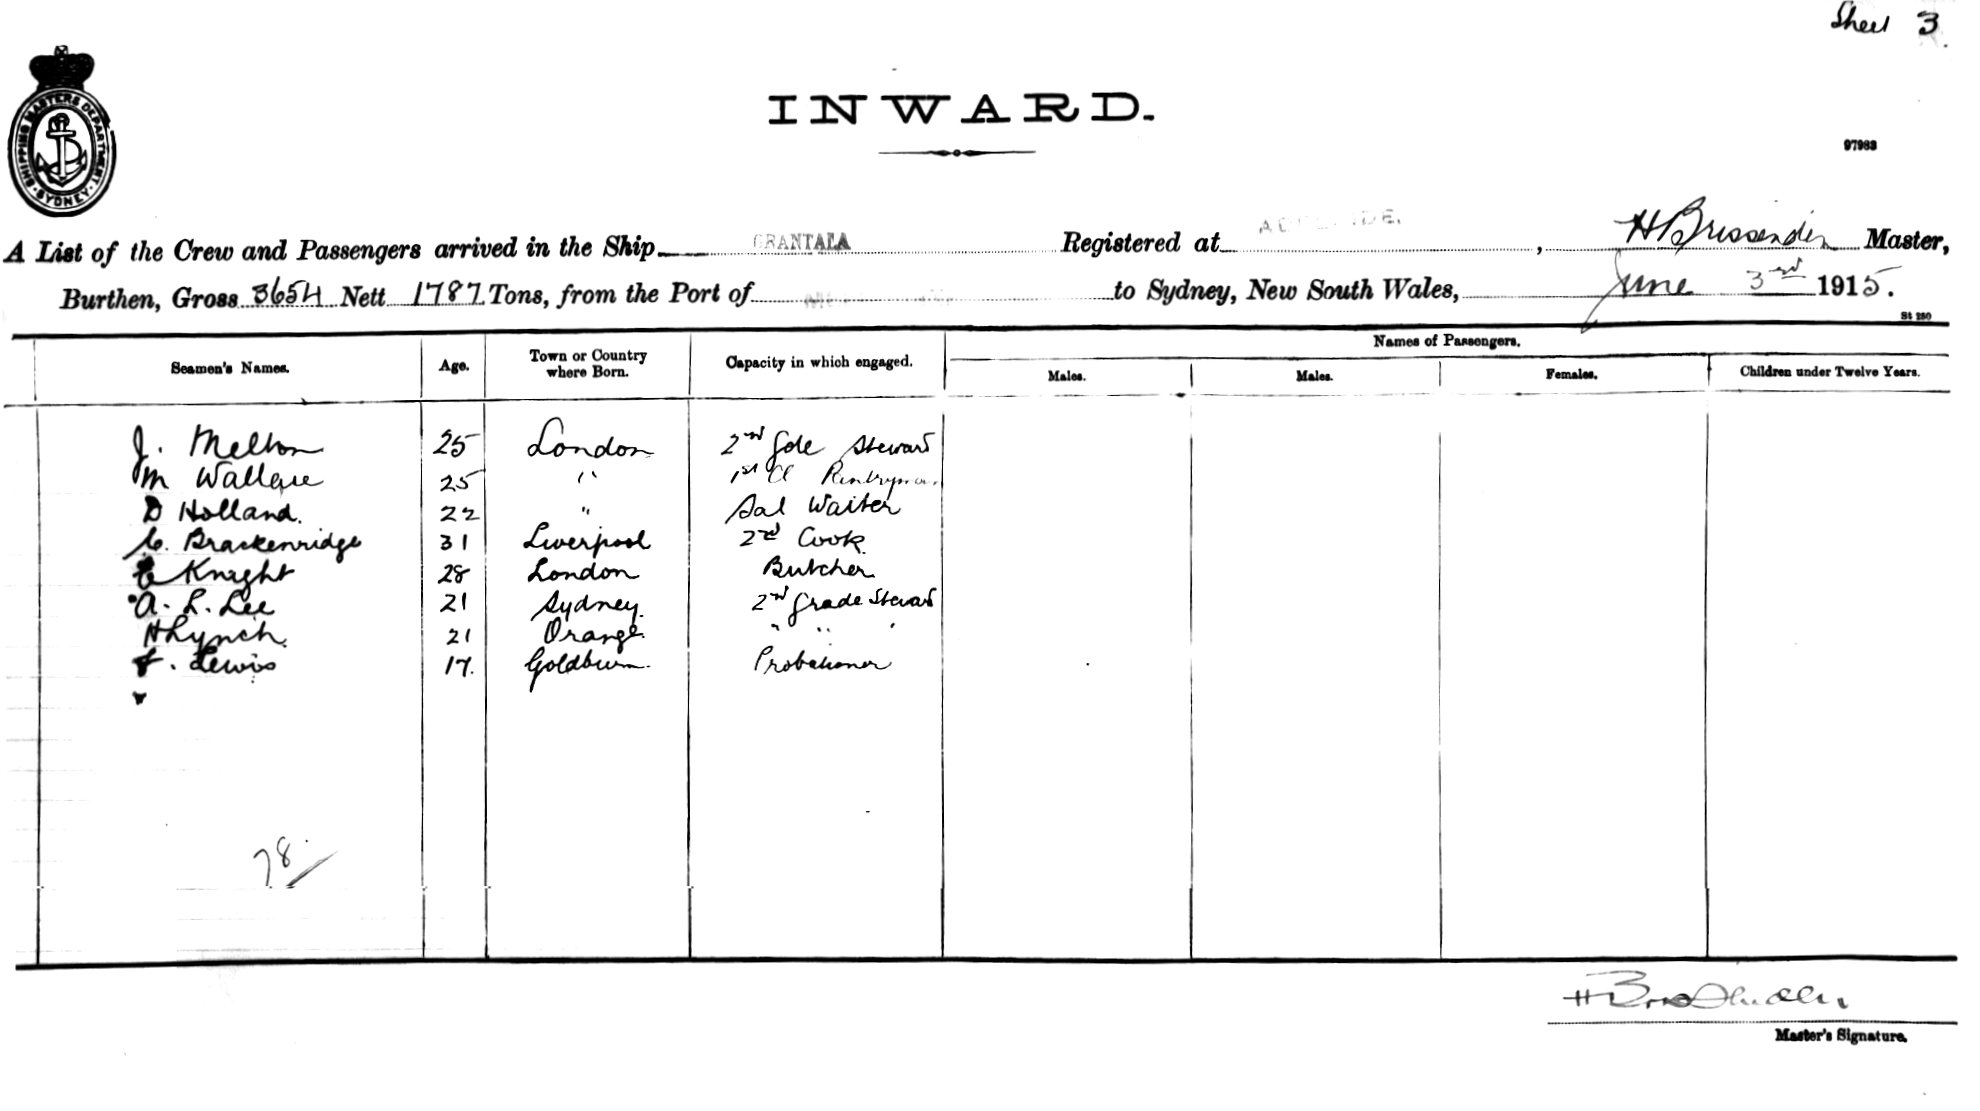 Sheet 3
INWARD.
SHIPPING MASTERS DEPARTMENT. SYDNEY
97983
A List of the Crew and Passengers arrived in the Ship GRANTALA Registered at ADELAIDE, H Brissenden Master,
Burthen, Gross 3654 Nett 1787 Tons, from the Port of to Sydney, New South Wales, June 3rd 1915.
St 280
Names of Passengers.
Seamen's Names. Age. Town or Country where Born. Capacity in which engaged. Males. Males. Females. Children under Twelve Years.
J. Melton 25 London 2nd Gde Steward
M Wallace 25 " 1st Cl Pantryman
D Holland. 22 " Sal Waiter
C. Brackenridge 31 Liverpool 2nd Cook
E Knight 28 London Butcher
A. L. Lee 21 Sydney. 2nd Grade Steward
H Lynch. 21 Orange. " " "
F. Lewis 17. Goldburn. Probationer
78
H Brissenden
Master's Signature.